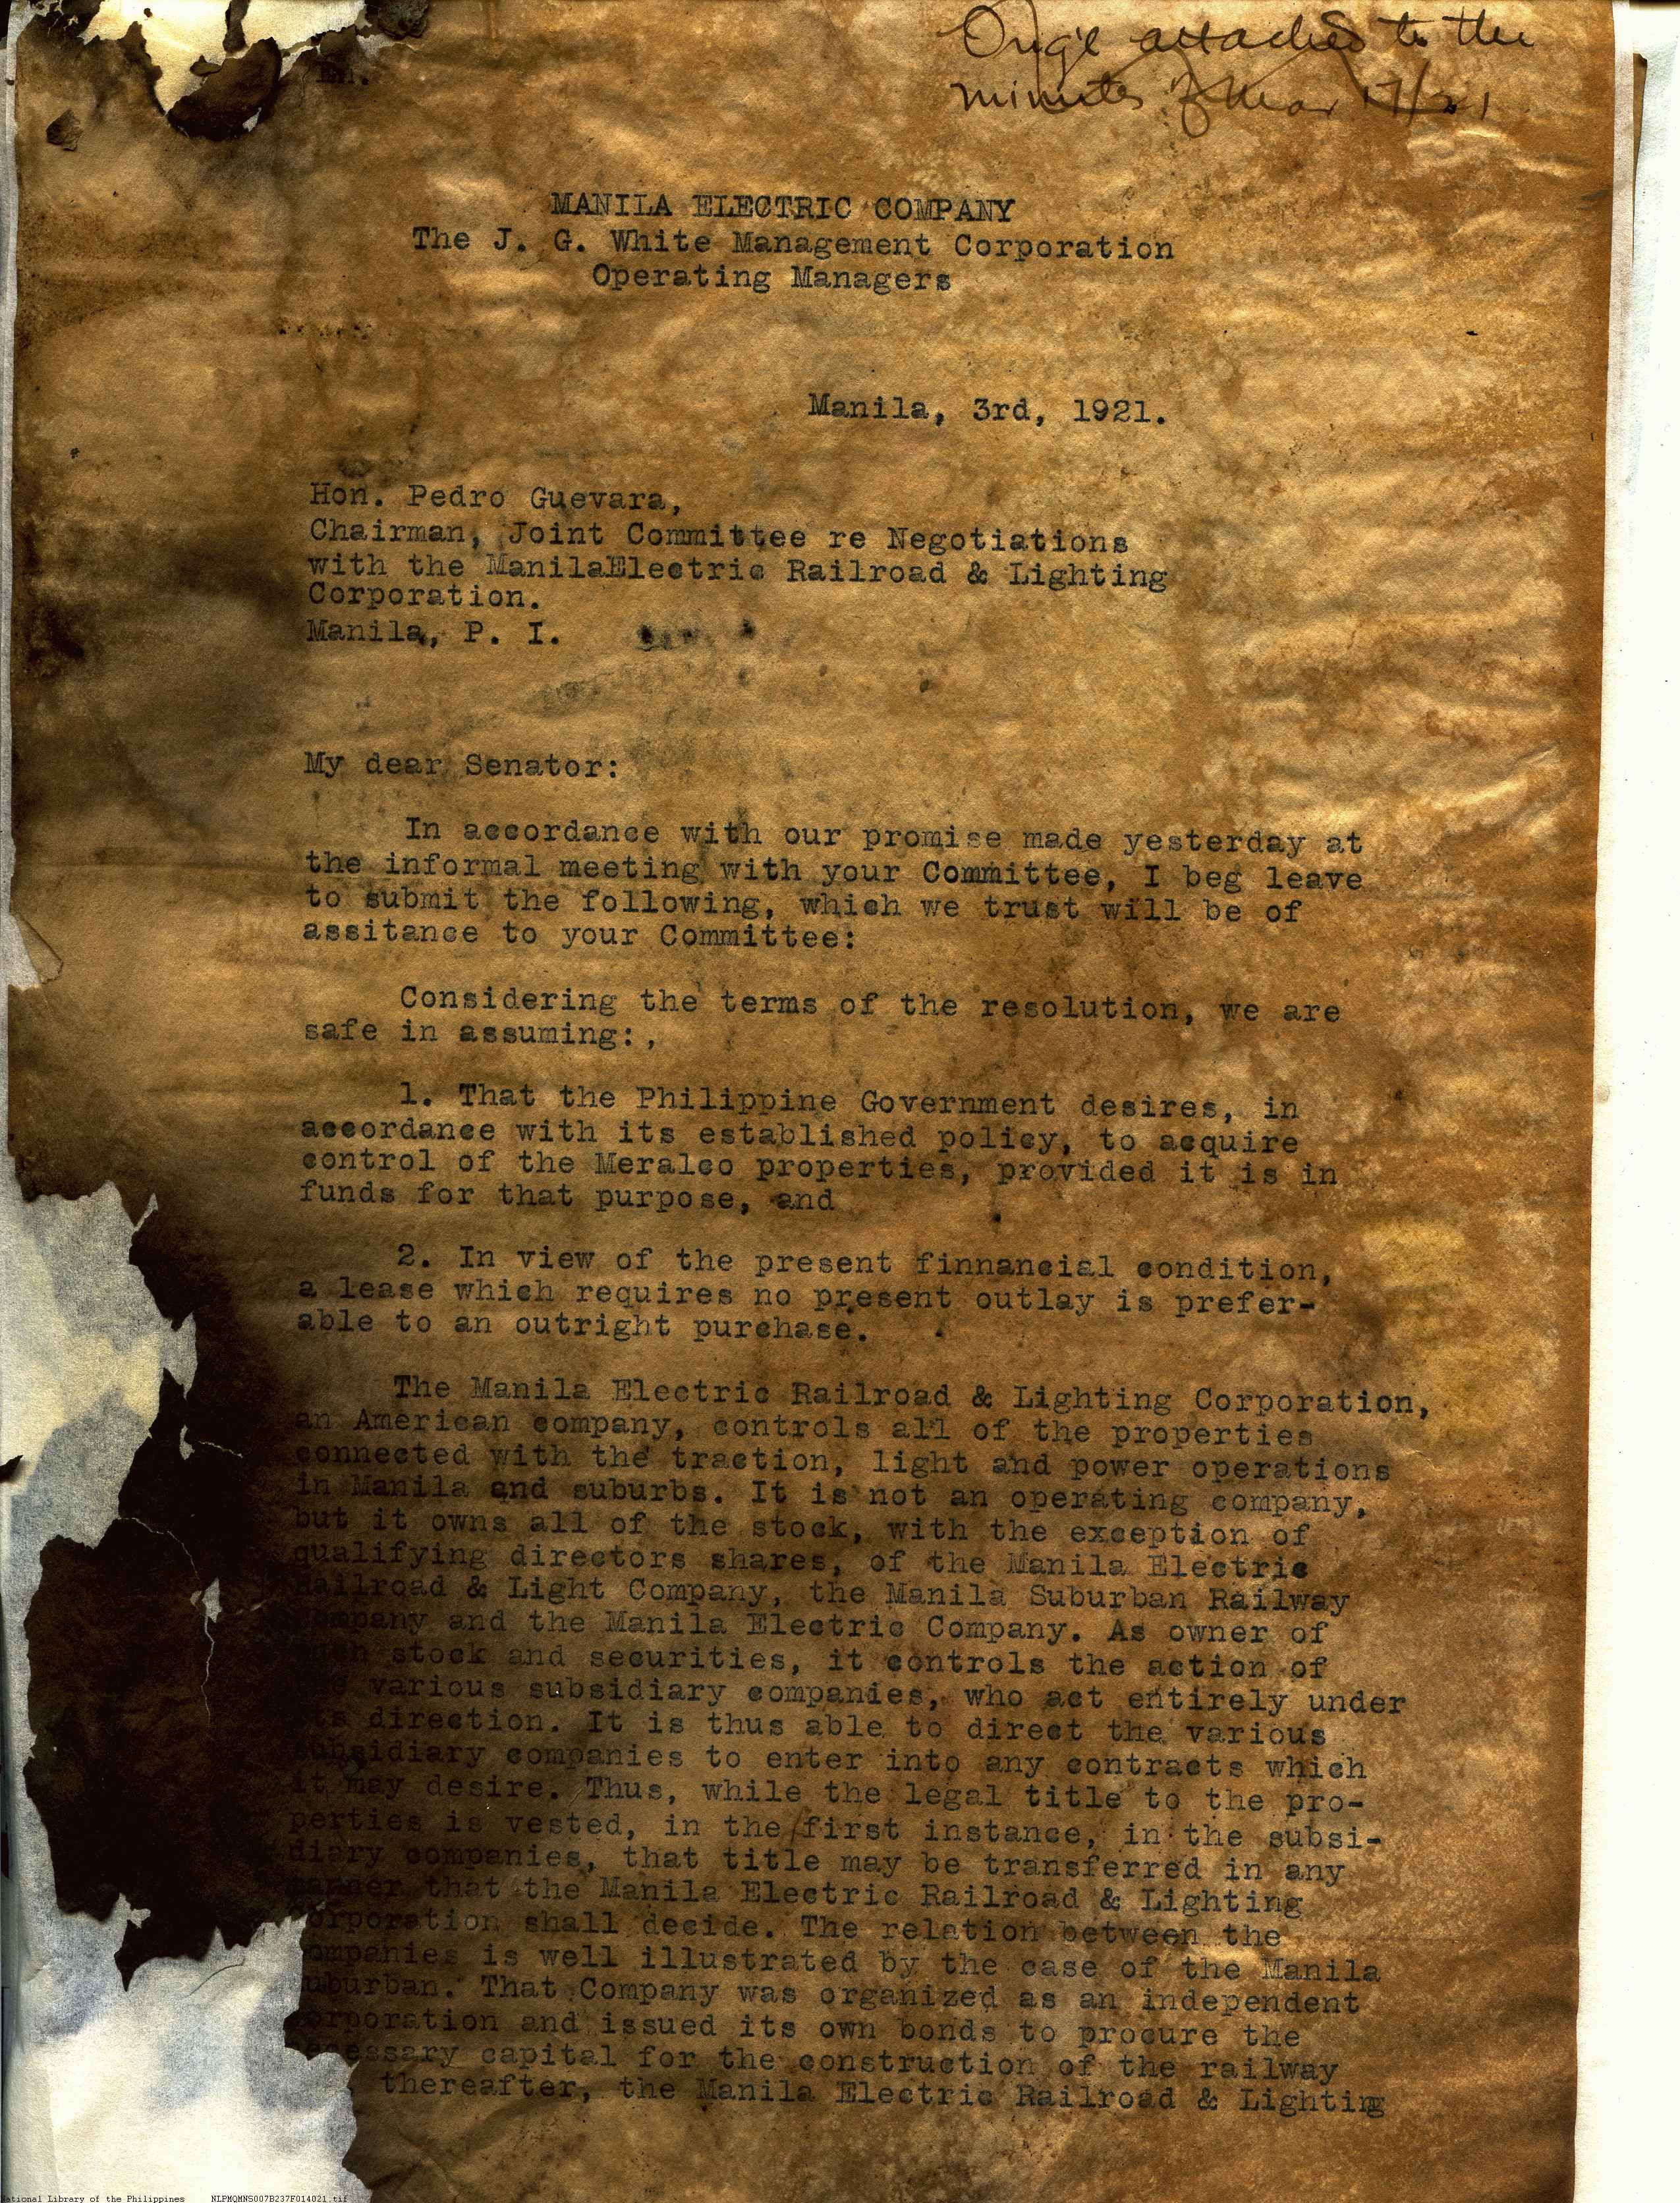 Orig'l attached to the
minutes of Mar 17/21
En.
MANILA ELECTRIC COMPANY
The J. G. White Management Corporation
Operating Managers
Manila, 3rd, 1921.
Hon. Pedro Guevara,
Chairman, Joint Committee re Negotiations
with the ManilaElectric Railroad & Lighting
Corporation.
Manila, P. I.
My dear Senator:
In accordance with our promise made yesterday at
the informal meeting with your Committee, I beg leave
to submit the following, which we trust will be of
assitance to your Committee:
Considering the terms of the resolution, we are
safe in assuming:,
1. That the Philippine Government desires, in
accordance with its established policy, to acquire
control of the Meralco properties, provided it is in
funds for that purpose, and
2. In view of the present finnancial condition,
a lease which requires no present outlay is prefer-
able to an outright purchase.
The Manila Electric Railroad & Lighting Corporation,
an American company, controls all of the properties
connected with the traction, light and power operations
in Manila and suburbs. It is not an operating company,
but it owns all of the stock, with the exception of
qualifying directors shares, of the Manila Electric
Railroad & Light Company, the Manila Suburban Railway
Company and the Manila Electric Company. As owner of
stock and securities, it controls the action of
various subsidiary companies, who act entirely under
its direction. It is thus able to direct the various
subsidiary companies to enter into any contracts which
it may desire. Thus, while the legal title to the pro-
perties is vested, in the first instance, in the subsi-
diary companies, that title may be transferred in any
manner that the Manila Electric Railroad & Lighting
Corporation shall decide. The relation between the
ompanies is well illustrated by the case of the Manila
uburban. That Company was organized as an independent
orporation and issued its own bonds to procure the
ecessary capital for the construction of the railway
thereafter, the Manila Electric Railroad & Lighting
National Library of the Philippines NLPMQMNS007B237F014021.tif